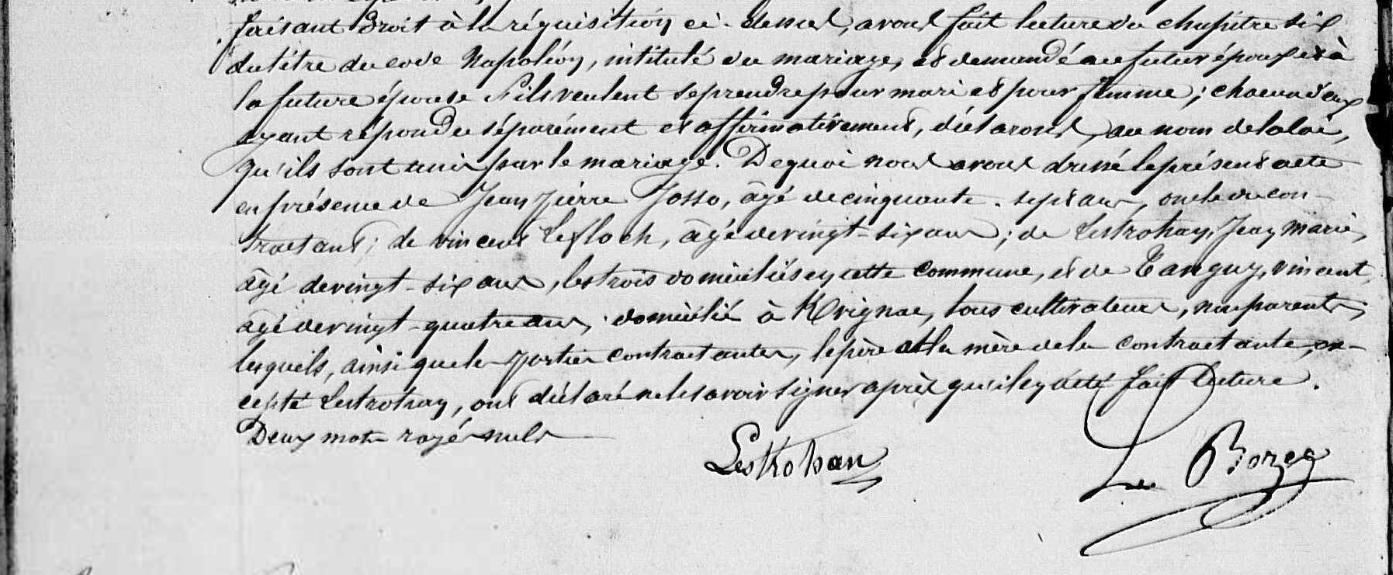 faisant droit à la réquisition ci-dessus, avons fait lecture du chapitre six
du titre du code Napoléon, intitulé du mariage, et demandé au futur époux et à
la future épouse s'ils veulent se prendre pour mari et pour femme; chacun d'eux
ayant répondu séparément et affirmativement, déclarons, au nom de la loi,
qu'ils sont unis par le mariage. De quoi nous avons dressé le présent acte
en présence de Jean Pierre Josso, âgé de cinquante-sept ans, oncle du con-
tractant; de vincent Le floch, âgé de vingt-six ans; de Lestrohan, Jean marie,
âgé de vingt-six ans, les trois domiciliés en cette commune, et de Tanguy, vincent,
âgé de vingt-quatre ans, domicilié à Kvignac, tous cultivateurs, non parents,
lesquels, ainsi que les parties contractantes, le père et la mère de la contractante, ex-
cepté Lestrohan, ont déclaré ne le savoir signer après qu'il en a été fait lecture.
Deux mots rayés nuls
Lestrohan Le Borzec